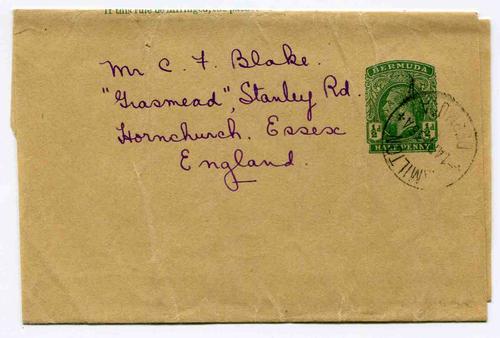 If this rule be infringed, the
Mr C. F. Blake.
"Grasmead", Stanley Rd.
Hornchurch. Essex
England.
BERMUDA
½d ½d
HALF PENNY